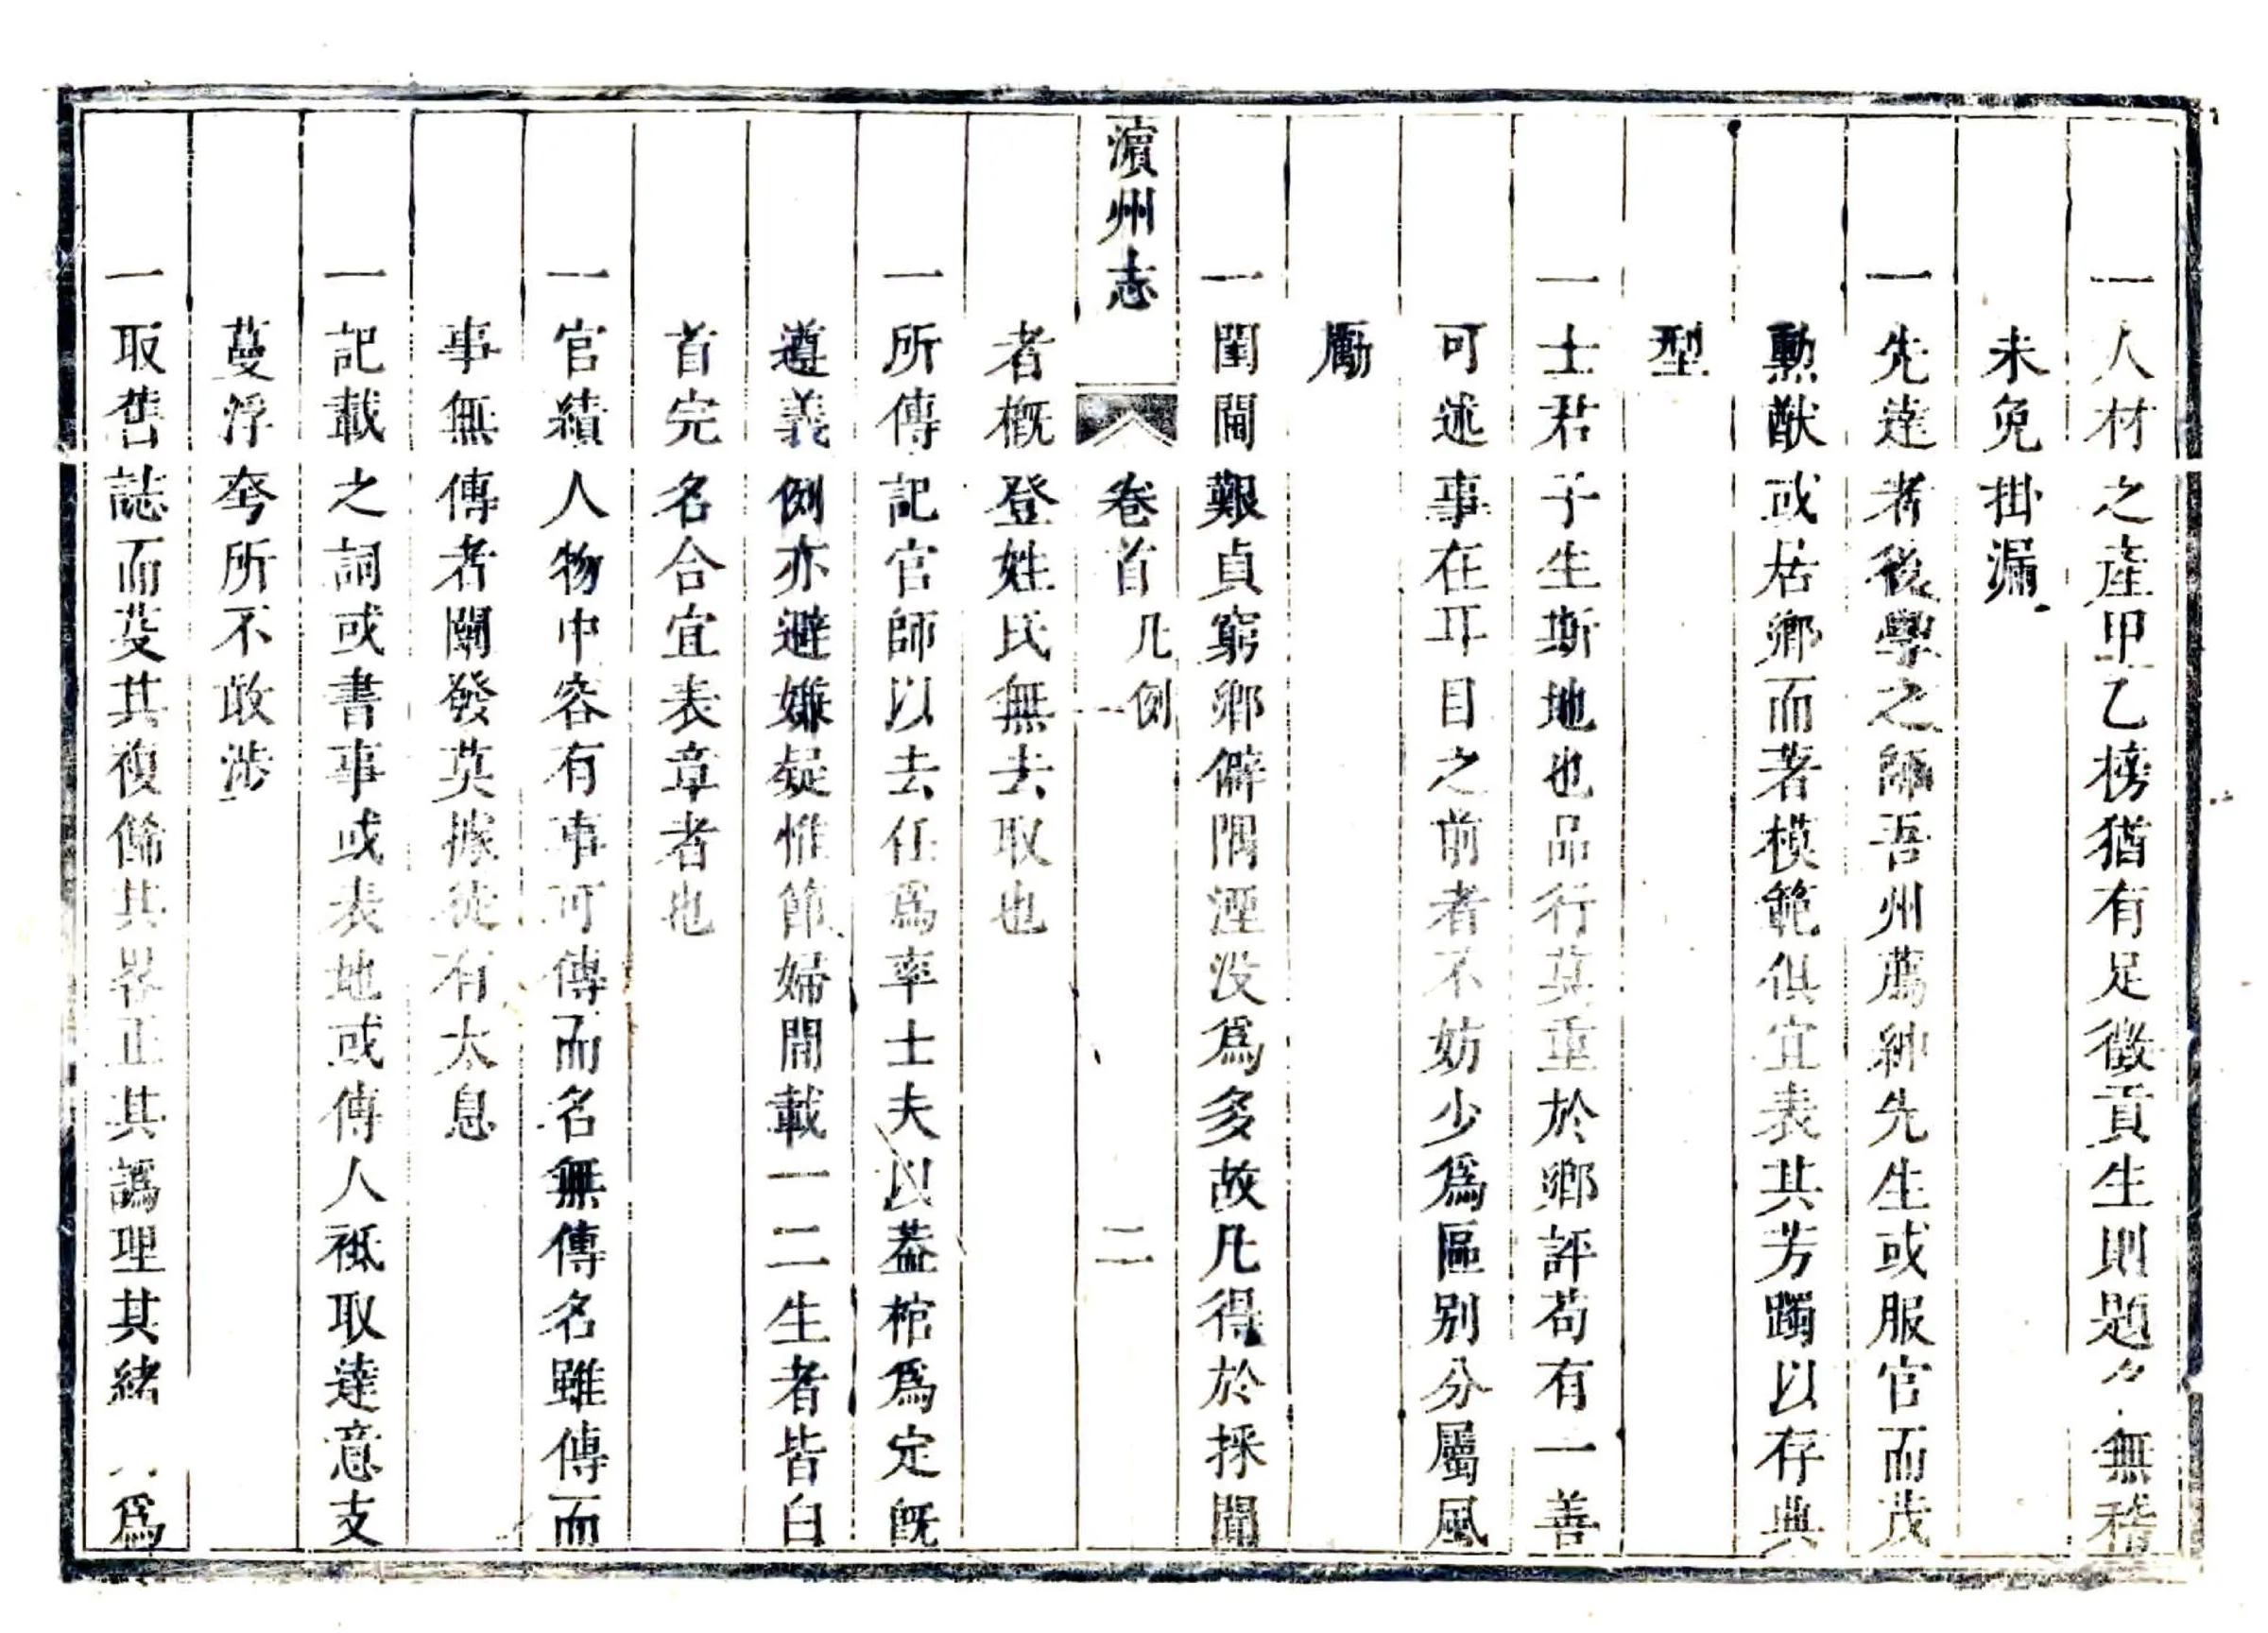 一人材之產甲乙榜猶有足徵貢生則題名無稽
未免掛漏
一先達者後學之師吾州薦紳先生或服官而茂
勳猷或居鄉而著模範俱宜表其芳躅以存典
型
一士君子生斯地也品行莫重於鄉評苟有一善
可述事在耳目之前者不妨少爲區别分屬風
勵
一閨閫艱貞窮鄉僻隅湮没爲多故凡得於採聞
濵州志 卷首 凡例 一 二
者概登姓氏無去取也
一所傳記官師以去任爲率士夫以葢棺爲定既
遵義例亦避嫌疑惟節婦開載一二生者皆白
首完名合宜表章者也
一官績人物中容有事可傳而名無傳名雖傳而
事無傳者闡發莫據徒有太息
一記載之詞或書事或表地或傳人祗取達意支
蔓浮夸所不敢涉
一取舊誌而芟其複條其畧正其譌理其緒 爲